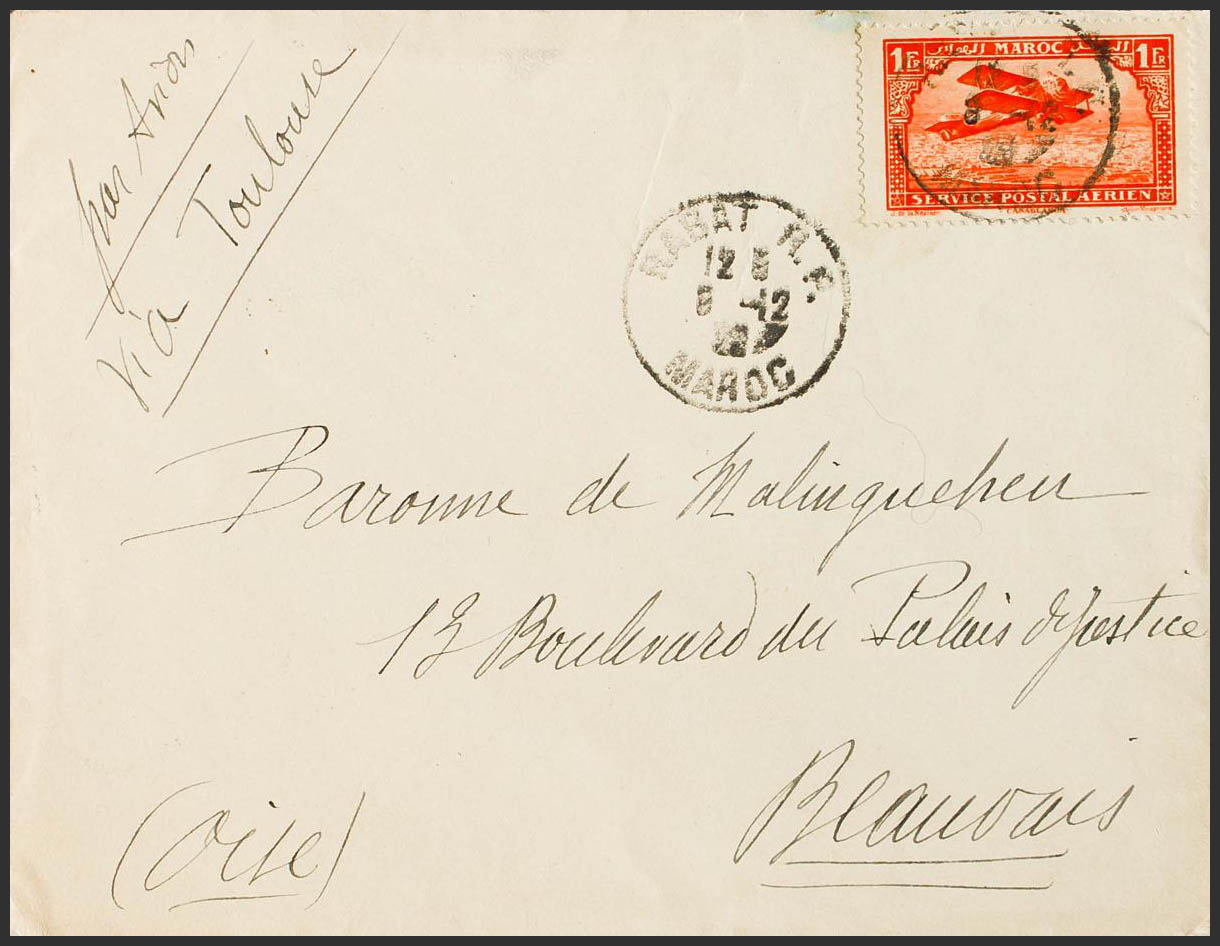 par Avion
via Toulouse
1 Fr MAROC 1 Fr
SERVICE POSTAL AÉRIEN
CASABLANCA
RABAT R.P.
12
-12
MAROC
Baronne de Malinguehen
13 Boulevard du Palais de Justice
Beauvais
(Oise)